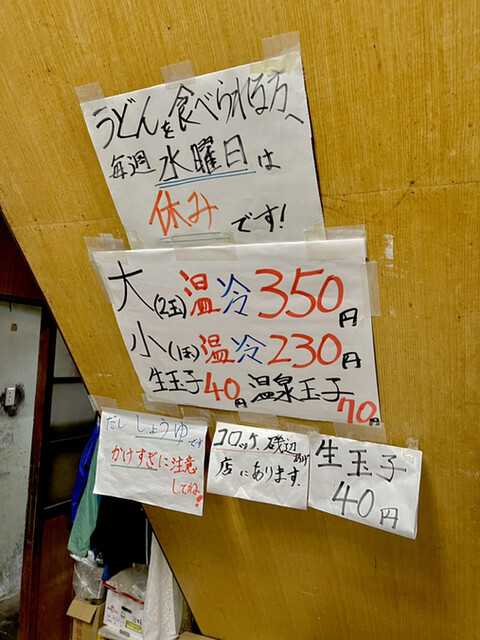 うどんを食べられる方へ
毎週水曜日は
休みです!
大(2玉)温冷350円
小(1玉)温冷230円
生玉子40円温泉玉子70円
だししょうゆです
かけすぎに注意
してね!
コロッケ、磯辺あげ
店にあります.
生玉子
40円